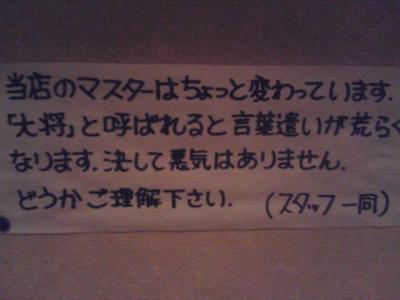 当店のマスターはちょっと変わっています.
「大将」と呼ばれると言葉遣いが荒らく
なります.決して悪気はありません.
どうかご理解下さい. (スタッフ一同)